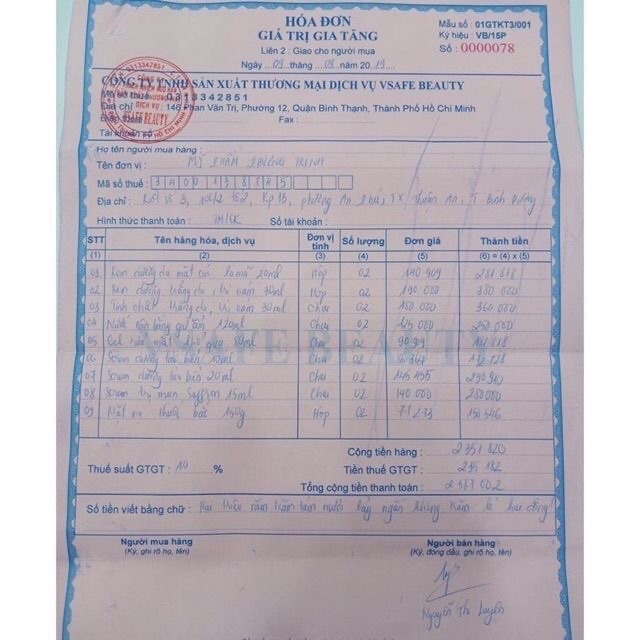 HÓA ĐƠN
GIÁ TRỊ GIA TĂNG
Liên 2 : Giao cho người mua
Ngày 09 tháng 09 năm 2019
Mẫu số : 01GTKT3/001
Ký hiệu : VB/15P
Số : 0000078
CÔNG TY TNHH SẢN XUẤT THƯƠNG MẠI DỊCH VỤ VSAFE BEAUTY
Mã số thuế : 0313342851
Địa chỉ : 146 Phan Văn Trị, Phường 12, Quận Bình Thạnh, Thành Phố Hồ Chí Minh
Điện thoại : Fax :
Tài khoản số :
Họ tên người mua hàng :
Tên đơn vị : MỸ PHẨM PHƯƠNG TRINH
Mã số thuế :
Địa chỉ : Kp 1B, phường An Phú, TX Thuận An, T Bình Dương
Hình thức thanh toán : TM/CK Số tài khoản :
STT Tên hàng hóa, dịch vụ Đơn vị tính Số lượng Đơn giá Thành tiền
(1) (2) (3) (4) (5) (6) = (4) x (5)
01 Kem dưỡng da mặt 20ml Hộp 02 140 909 281 818
02 Kem dưỡng trắng da, trị nám 30ml Hộp 02 190 000 380 000
03 Tinh chất trắng da, trị nám 30ml Chai 02 180 000 360 000
04 Nước 120ml Chai 02 125 000 250 000
05 Gel rửa mặt 50ml Chai 02 90 909 181 818
06 Serum dưỡng 10ml Chai 02
07 Serum dưỡng 20ml Chai 02 145 455 290 910
08 Serum trị mụn 15ml Chai 02 140 000 280 000
09 Mặt nạ thuốc bắc 150g Hộp 02 78 273 156 546
VSAFE BEAUTY
Cộng tiền hàng : 2 351 820
Thuế suất GTGT : 10 % Tiền thuế GTGT : 235 182
Tổng cộng tiền thanh toán : 2 587 002
Số tiền viết bằng chữ : Hai triệu năm trăm tám mươi bảy ngàn không trăm lẻ hai đồng
Người mua hàng
(Ký, ghi rõ họ, tên)
Người bán hàng
(Ký, đóng dấu, ghi rõ họ, tên)
Nguyễn Thị Luyến